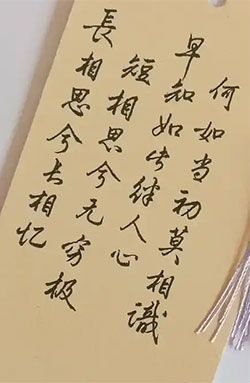 長相思兮长相忆
短相思兮无穷极
早知如此绊人心
何如当初莫相識